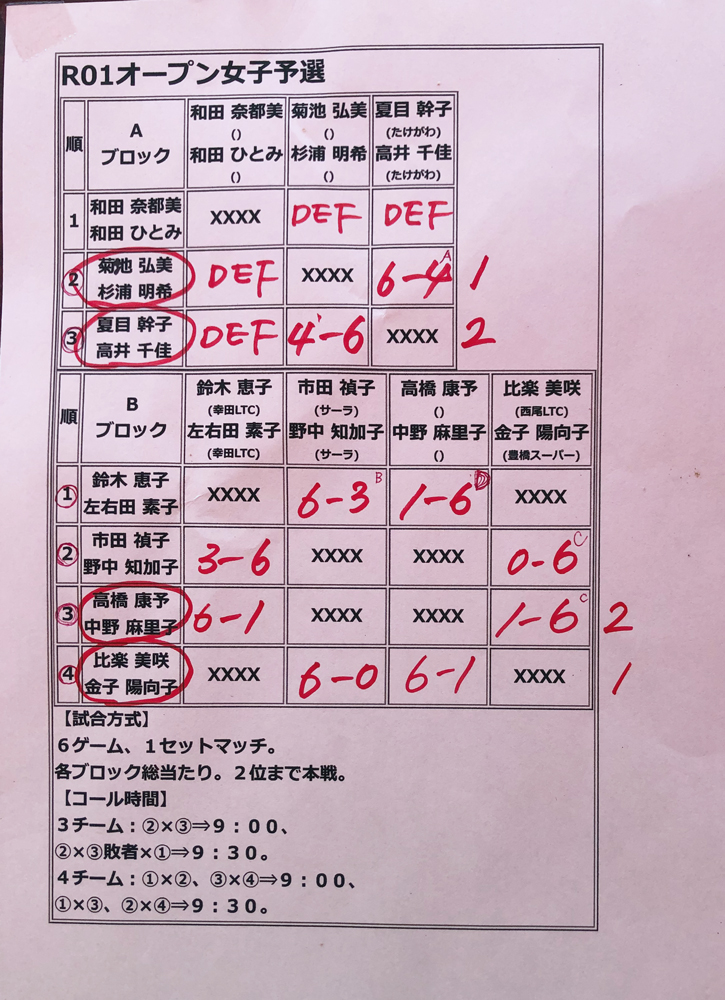 R01オープン女子予選
順 A ブロック 和田 奈都美 () 和田 ひとみ () 菊池 弘美 () 杉浦 明希 () 夏目 幹子 (たけがわ) 高井 千佳 (たけがわ)
1 和田 奈都美 和田 ひとみ XXXX DEF DEF
② 菊池 弘美 杉浦 明希 DEF XXXX 6-4 A 1
③ 夏目 幹子 高井 千佳 DEF 4-6 XXXX 2
順 B ブロック 鈴木 恵子 (幸田LTC) 左右田 素子 (幸田LTC) 市田 禎子 (サーラ) 野中 知加子 (サーラ) 高橋 康予 () 中野 麻里子 () 比楽 美咲 (西尾LTC) 金子 陽向子 (豊橋スーパー)
① 鈴木 恵子 左右田 素子 XXXX 6-3 B 1-6 D XXXX
② 市田 禎子 野中 知加子 3-6 XXXX XXXX 0-6 C
③ 高橋 康予 中野 麻里子 6-1 XXXX XXXX 1-6 C 2
④ 比楽 美咲 金子 陽向子 XXXX 6-0 6-1 XXXX 1
【試合方式】
６ゲーム、１セットマッチ。
各ブロック総当たり。２位まで本戦。
【コール時間】
３チーム：②×③⇒９：００、
②×③敗者×①⇒９：３０。
４チーム：①×②、③×④⇒９：００、
①×③、②×④⇒９：３０。